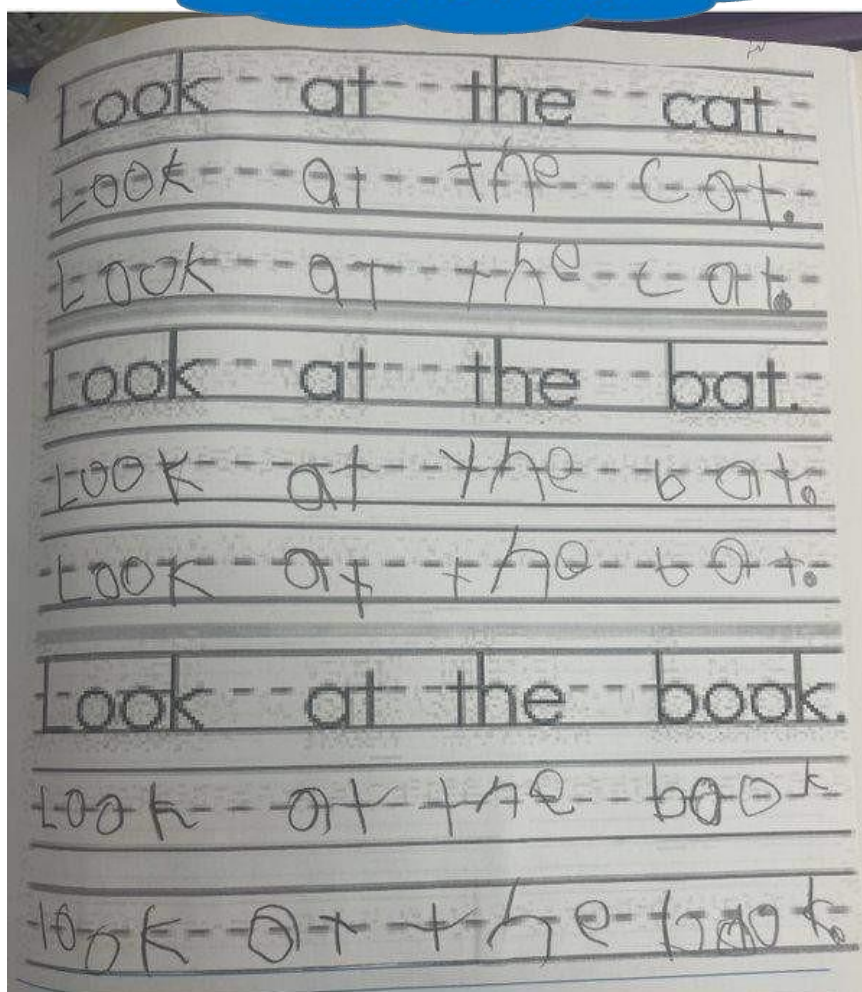 Look at the cat.
Look at the cat.
Look at the cat.
Look at the bat.
Look at the bat.
Look at the bat.
Look at the book.
Look at the book
look at the book.